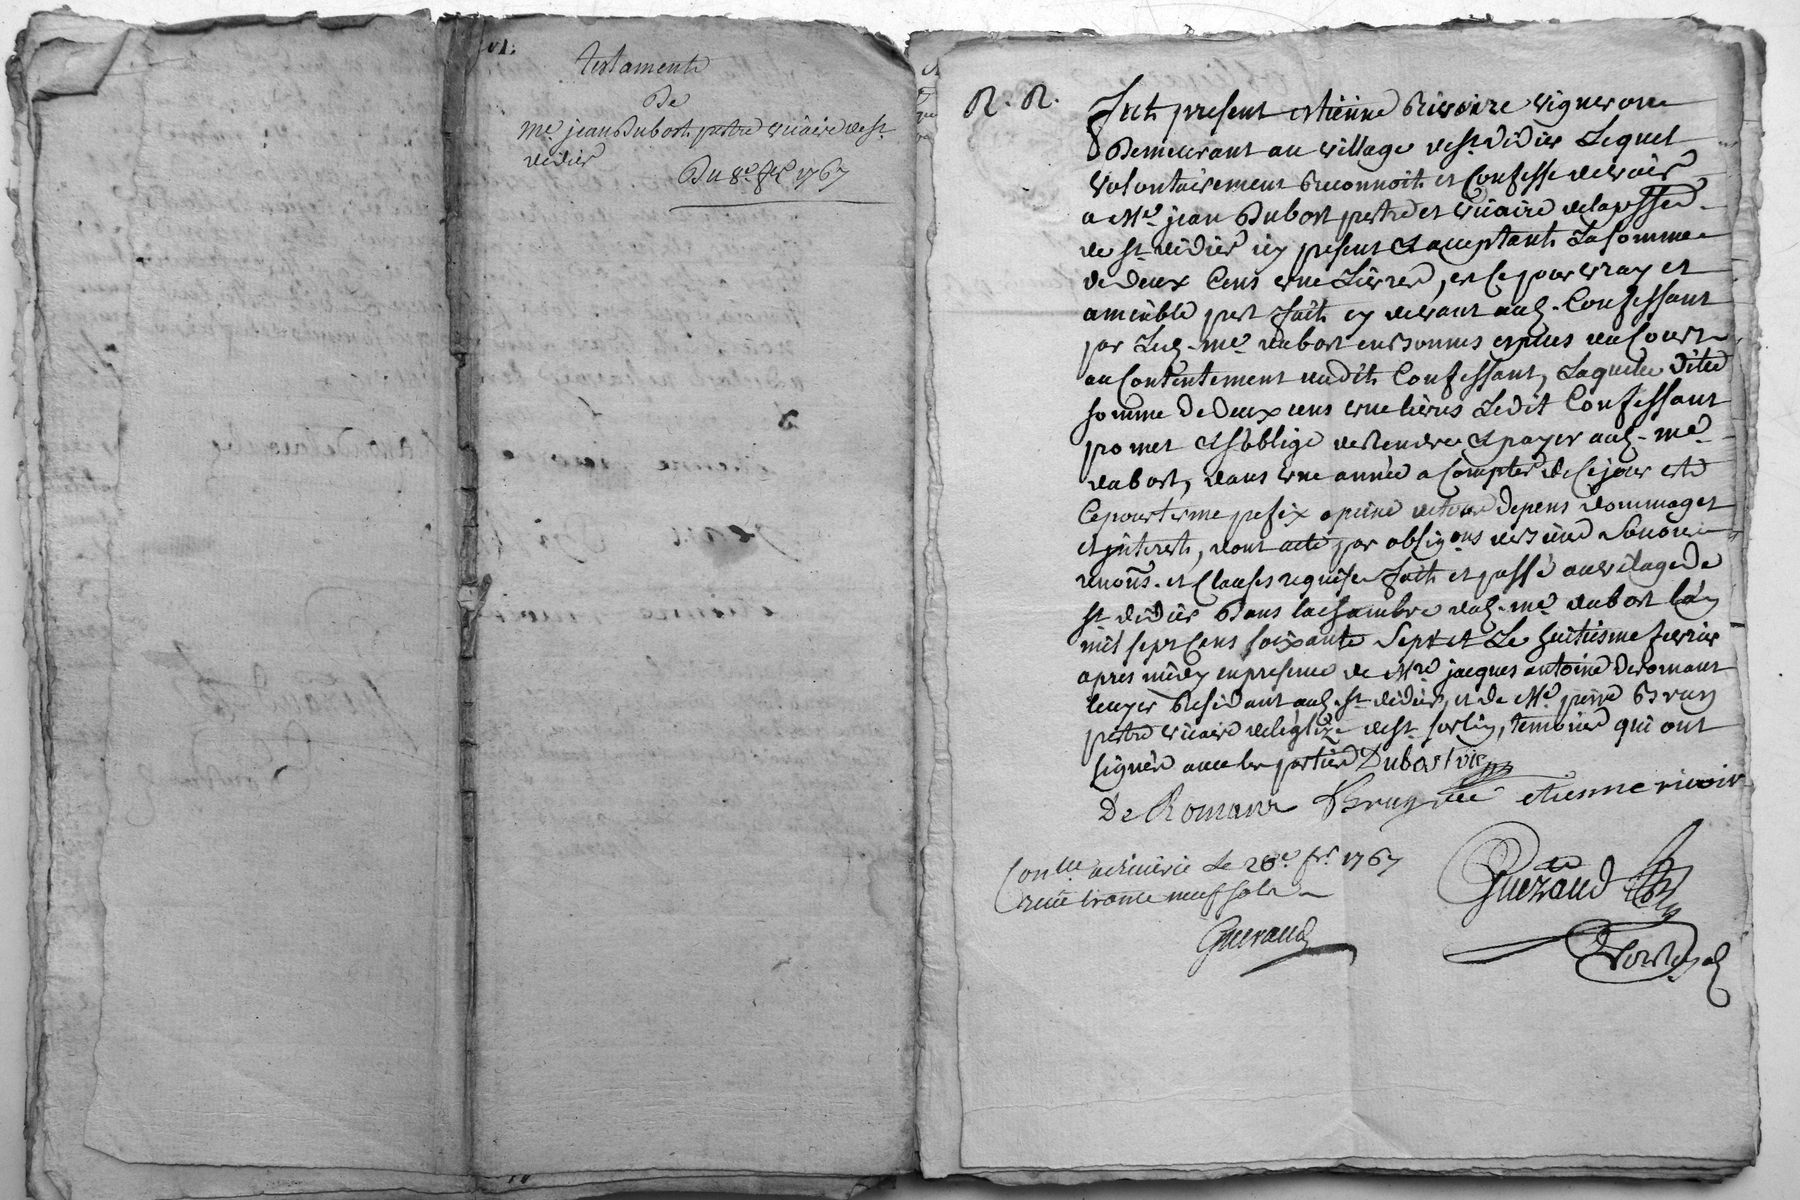 testament
De
me. jean Dubost pretre vicaire de st
didier
Du 8e. fr. 1767
R. R.
Fut present estienne Rivoire vigneron
Demeurant au village de st didier Lequel
volontairement Reconnoit et Confesse devoir
a Me. jean Dubost pretre et vicaire de la psse
de st didier icy present et acceptant La somme
de deux Cens une Livres, et Ce pour vray et
amiable prest fait cy devant aud. Confessant
par Led. me. dubost en sonnus espèces du Cours
au Contentement dudit Confessant, Laquelle dite
somme de deux cens une livres Ledit Confessant
promet et s'oblige de Rendre et payer aud. me.
dubost, dans une année a Compter de Ce jour et
Ce pour terme prefix a peine de tous depens dommages
et jnterests, dont acte par obligons
et Clauses requises fait et passé au vilage de
st didier Dans la chambre dud. me. dubost L'an
mil sept Cens soixante Sept et Le huitiesme fevrier
apres midy en presence de Mre jacques antoine deromans
Ecuyer Residant aud. st didier, et de Me. pierre Brun
pretre vicaire de l'eglize de st sorlin, temoins qui ont
signés avec les parties Dubost vic
De Romans Brun vic etienne rivoire
Conlle a thivérie Le 20e. fr. 1767
Reçu trente neuf sols
Gueraud
Gueraud